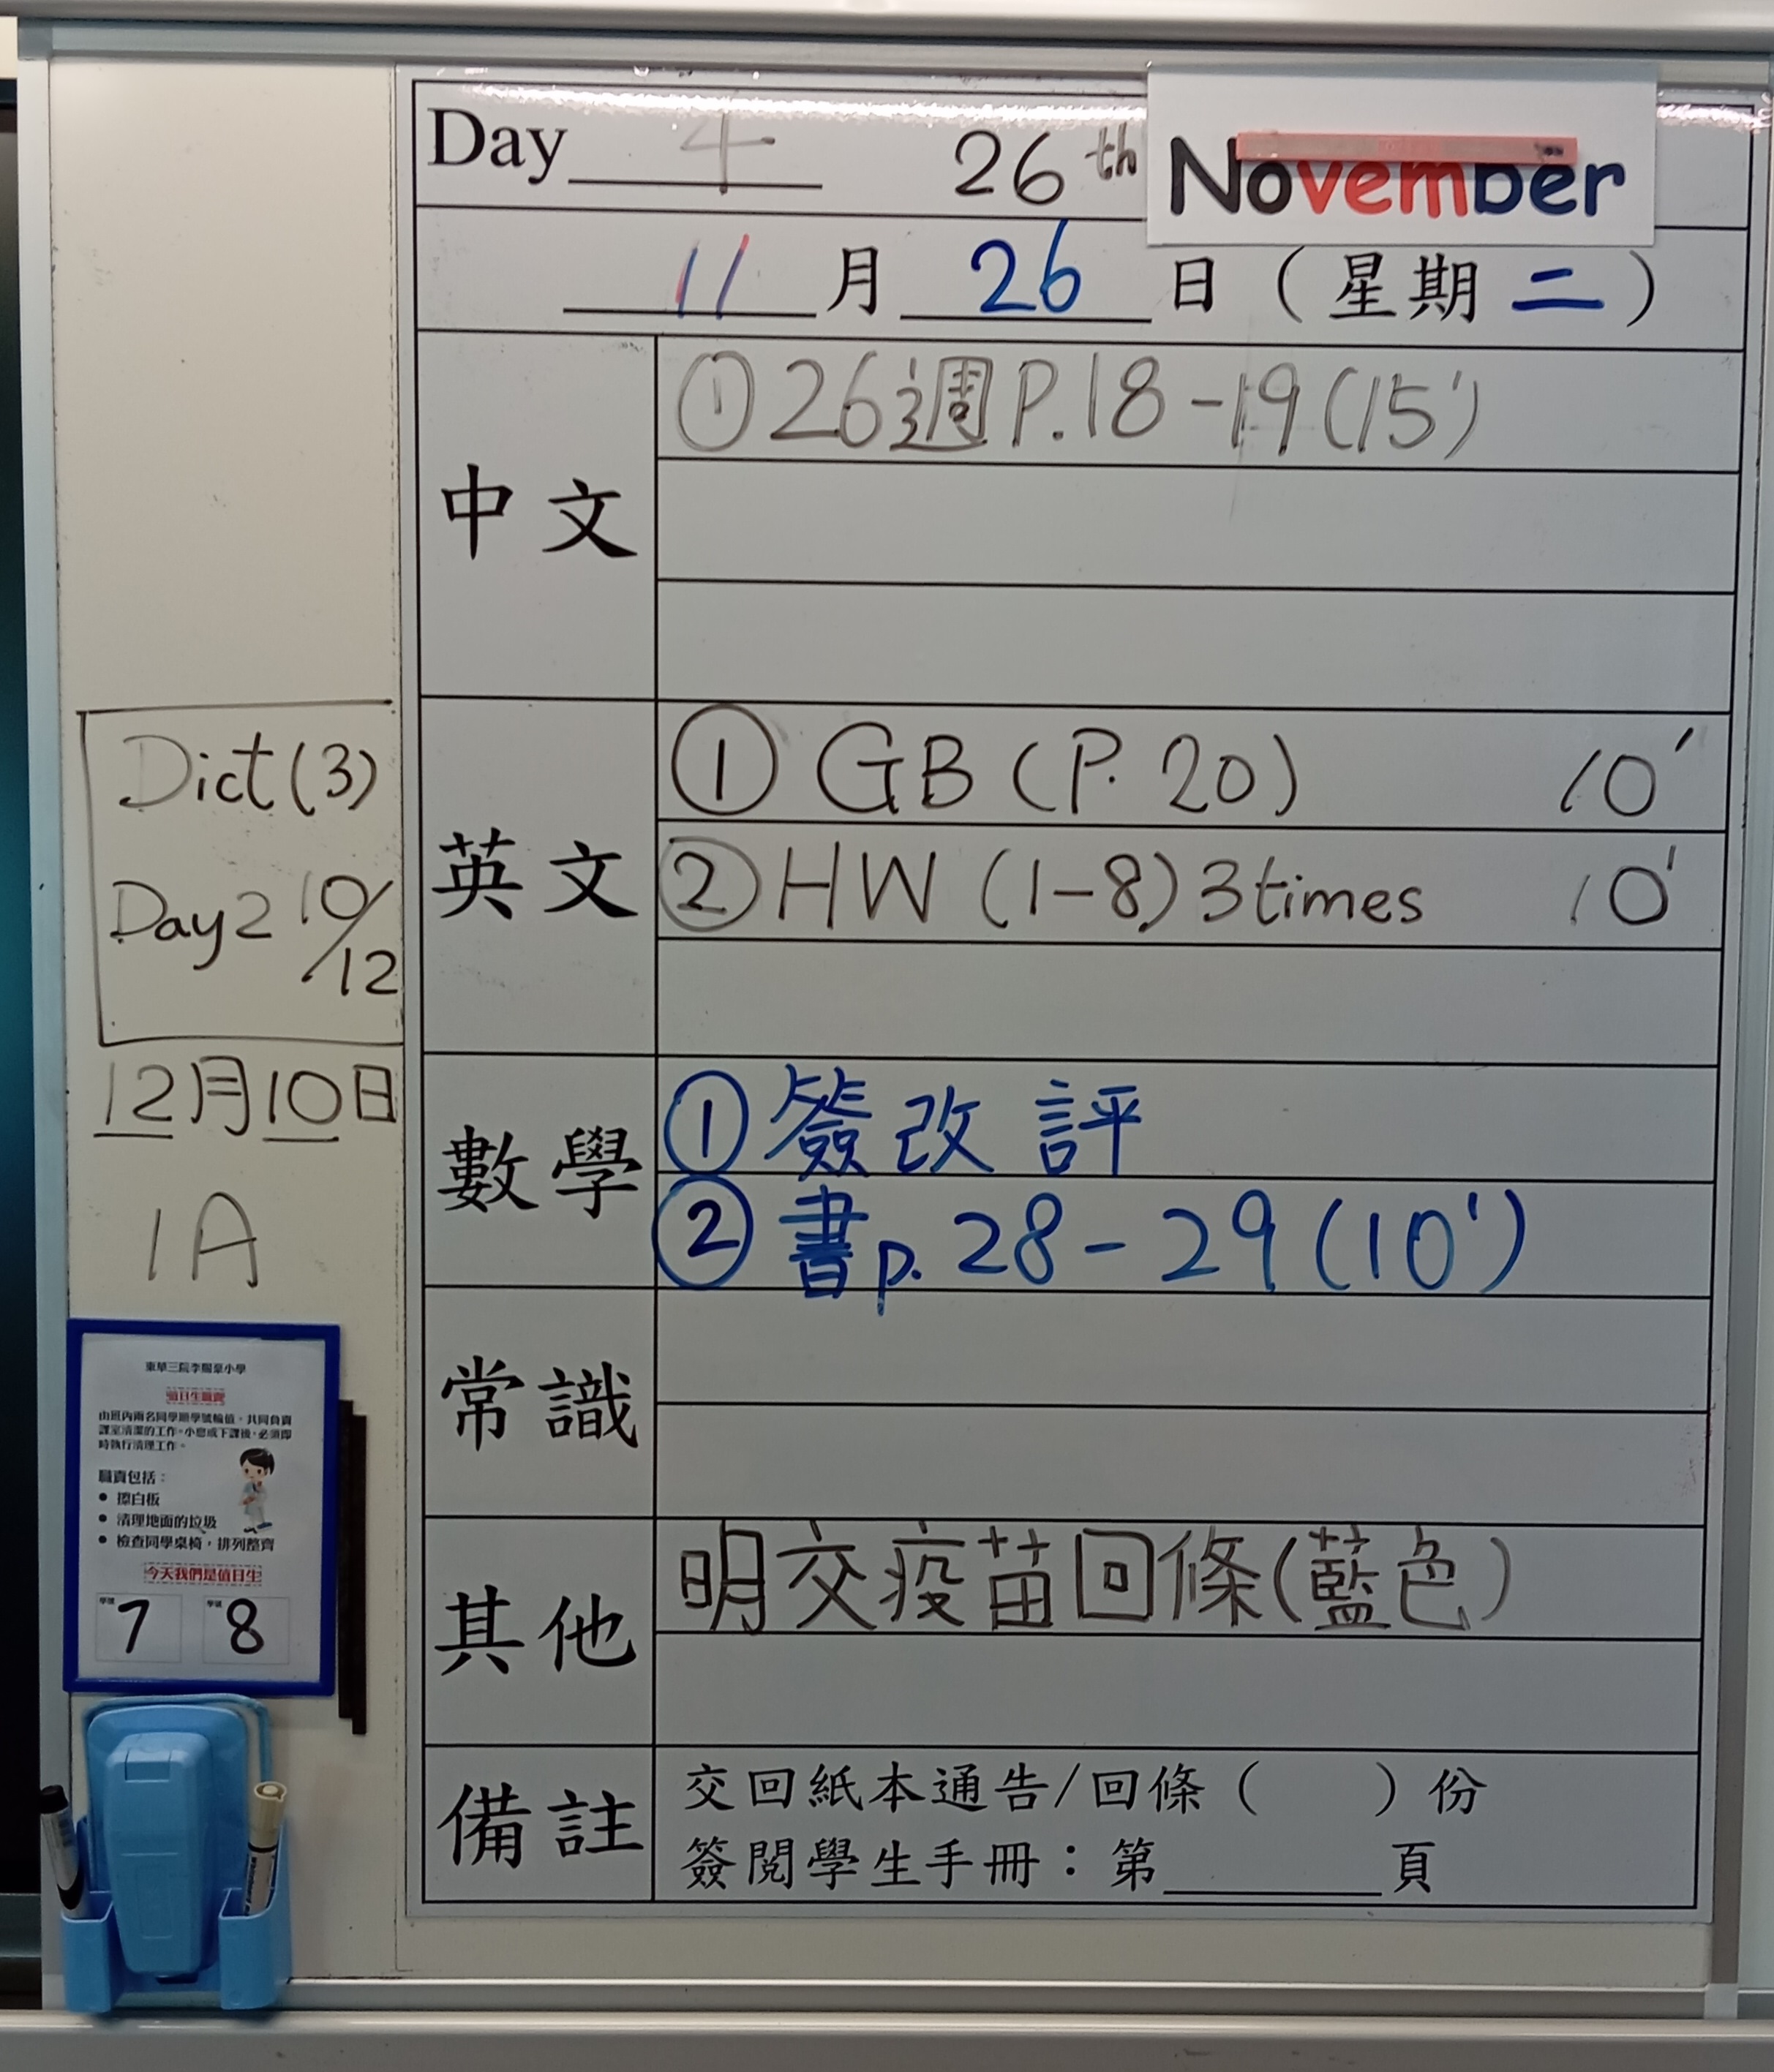 Day 4 26th November
11月26日(星期二)
中文
①26週P.18-19(15')
英文
① GB (P. 20) 10'
② HW (1-8) 3times 10'
數學
①簽改評
②書p.28-29(10')
常識
其他
明交疫苗回條(藍色)
備註
交回紙本通告/回條( )份
簽閱學生手冊:第______頁
Dict(3)
Day2 10/12
12月10日
1A
東華三院李賜豪小學
值日生職責
由班內兩名同學順學號輪值,共同負責
課室清潔的工作。小息或下課後,必須即
時執行清理工作。
職責包括:
• 擦白板
• 清理地面的垃圾
• 檢查同學桌椅,排列整齊
今天我們是值日生
學號 7 學號 8